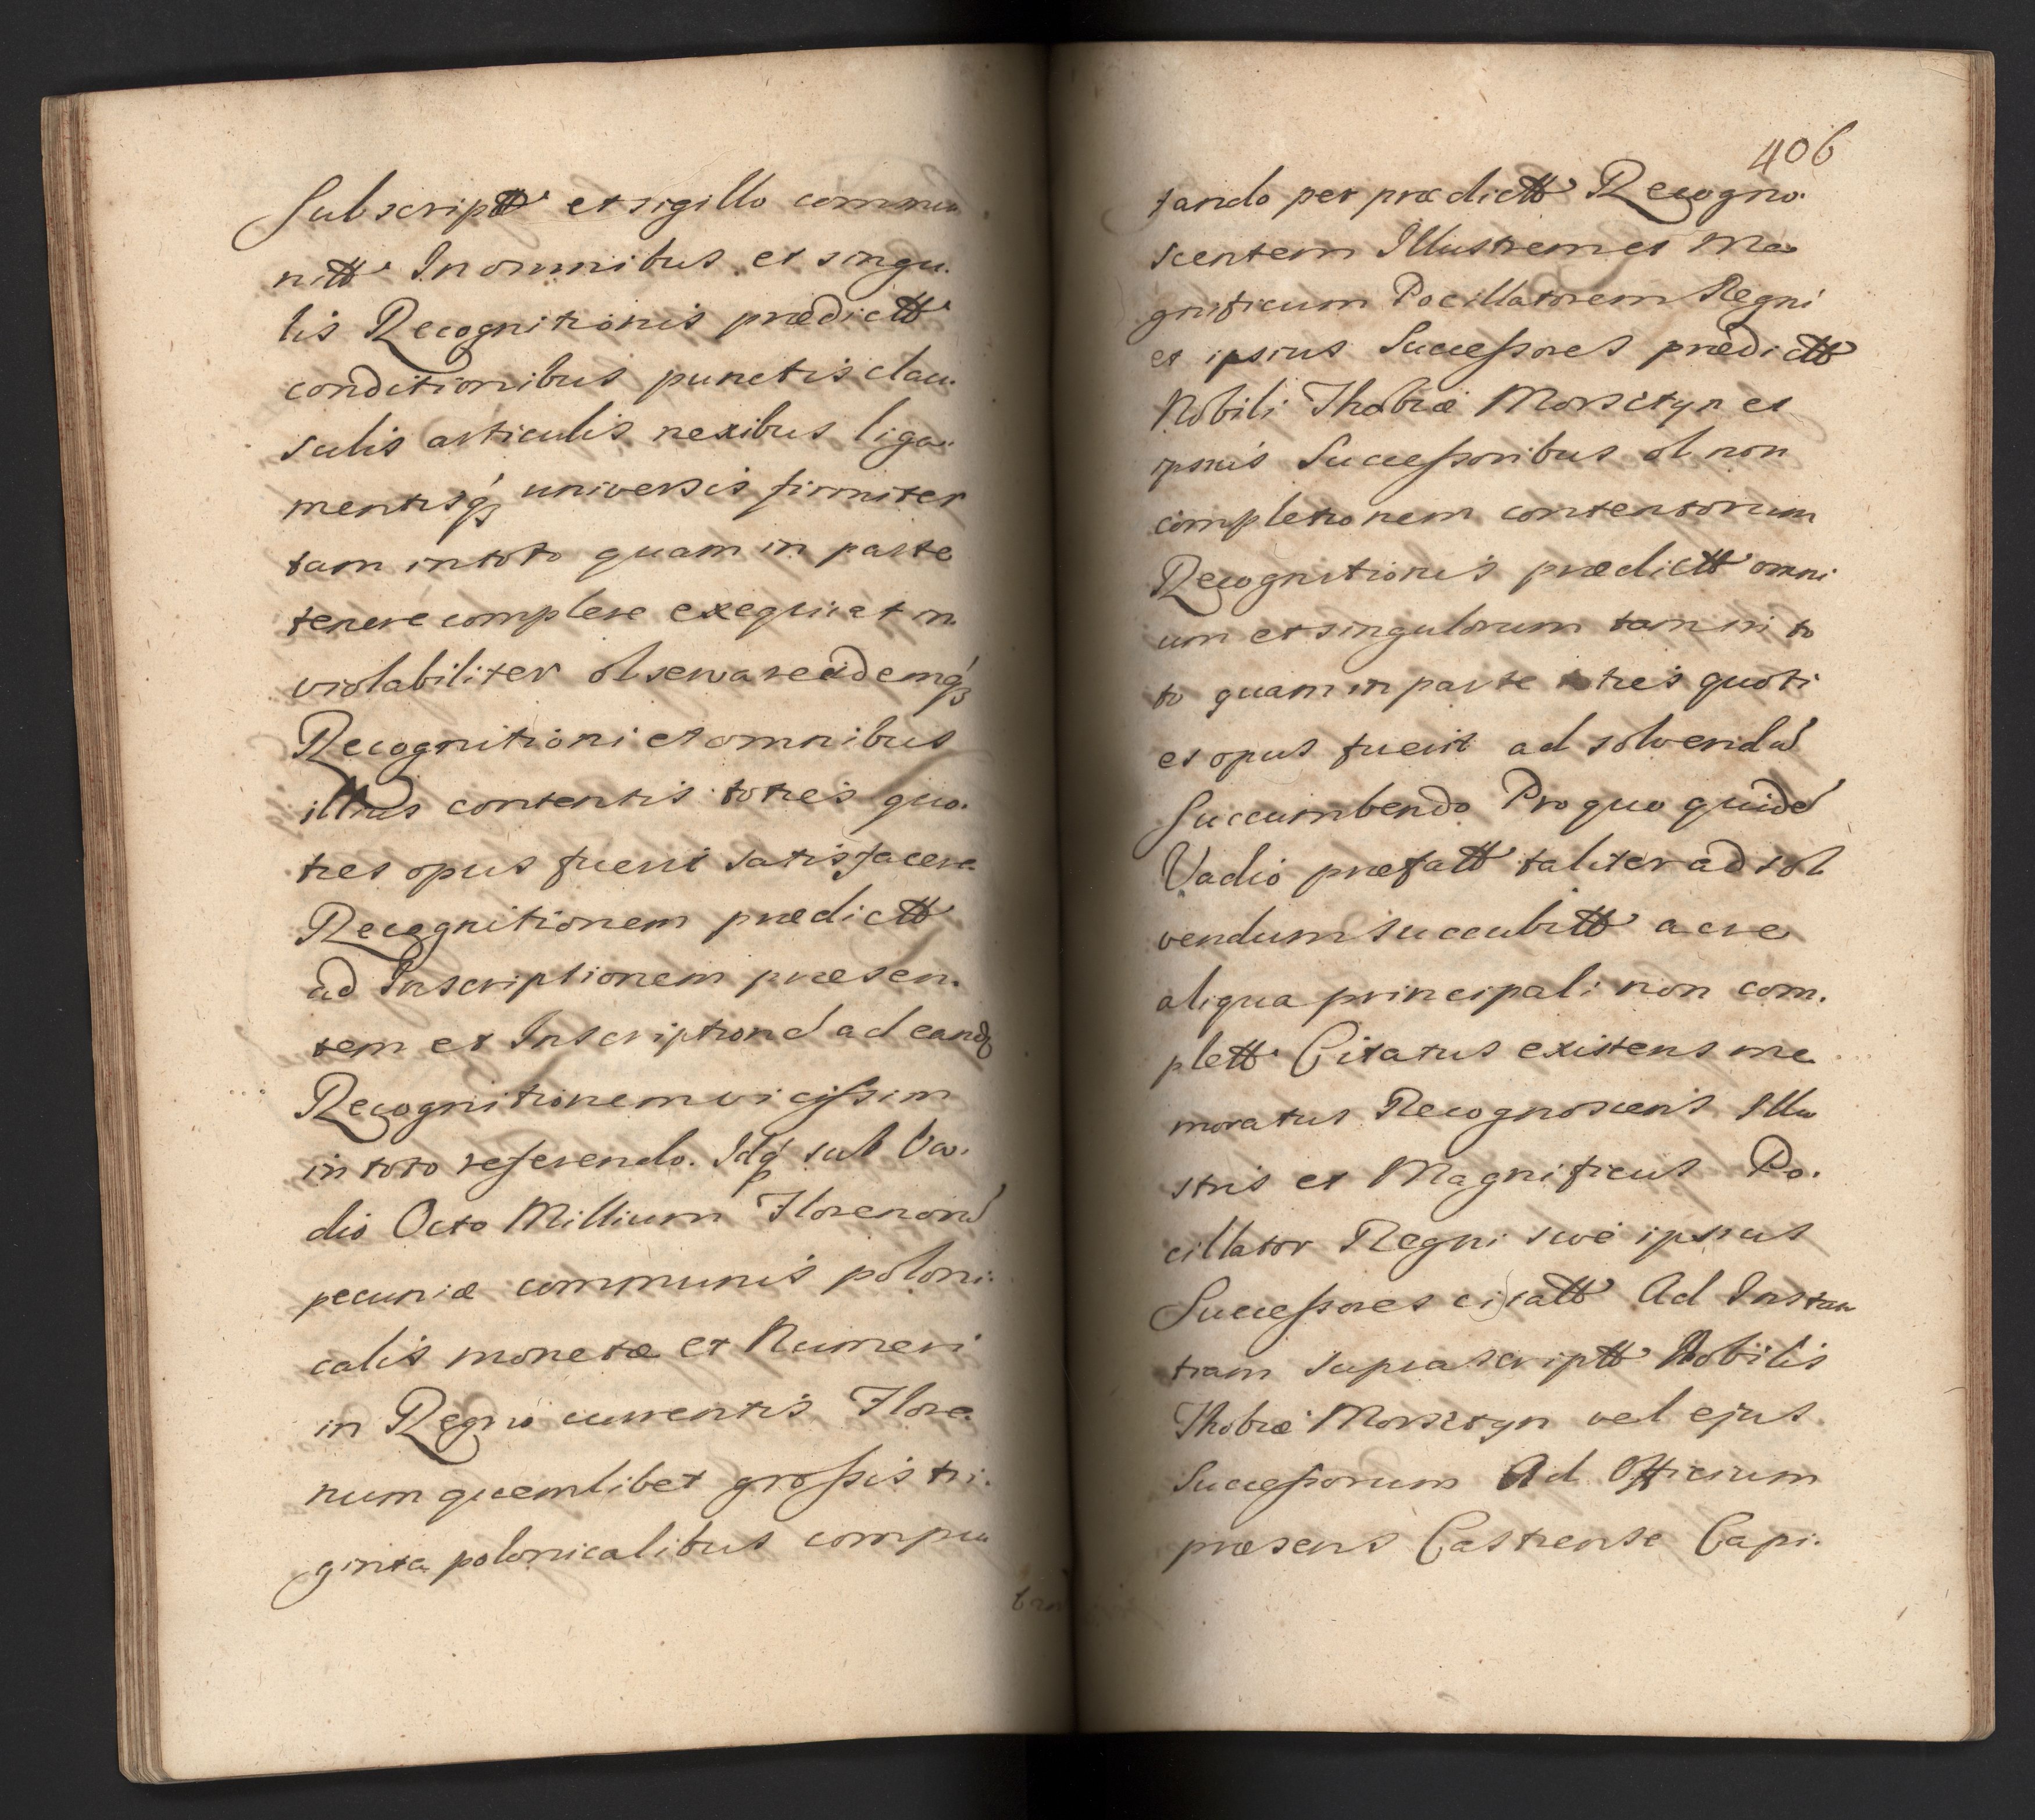 Subscriptt et sigillo commu
nitt In omnibus et singu.
lis Recognitionis prædictt
conditionibus punctis clau.
sulis articulis nexibus liga.
mentisq universis firmiter
tam in toto quam in parte
tenere complere exequi et in
violabiliter observare eidemq
Recognitioni et omnibus
illius contentis toties quo.
ties opus fuerit satisfacere
Recognitionem prædictt
ad Inscriptionem præsen.
tem et Inscriptione ad eand
Recognitionem vicissim
in toto referendo. Idq sub Va.
dio Octo Millium Florenoru
pecuniæ communis poloni.
calis monetæ et Numeri
in Regno currentis Flore.
num quemlibet grossis tri.
ginta polonicalibus compu
406
tando per prædictt Recogno.
scentem Illustrem et Ma
gnificum Pocillatorem Regni
et ipsius Successores prædictt
Nobili Thobiæ Morsztyn et
ipsius Successoribus ob non
completionem contentorum
Recognitionis prædictt omni
um et singulorum tam in to
to quam in parte toties quoti
es opus fuerit ad solvendu
Succumbendo Pro quo quide
Vadio præfatt taliter ad sol
vendum succubitt ac re
aliqua principali non com.
plett Citatus existens me
moratus Recognoscens Illu
stris et Magnificus Po.
cillator Regni sive ipsius
Successores citatt Ad Instan
tiam suprascriptt Nobilis
Thobiæ Morsztyn vel ejus
Successorum Ad Officium
præsens Castrense Capi.